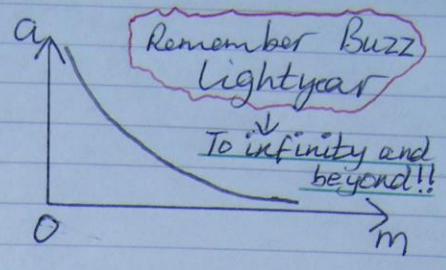 a
Remember Buzz
Lightyear
To infinity and
beyond!!
0
m